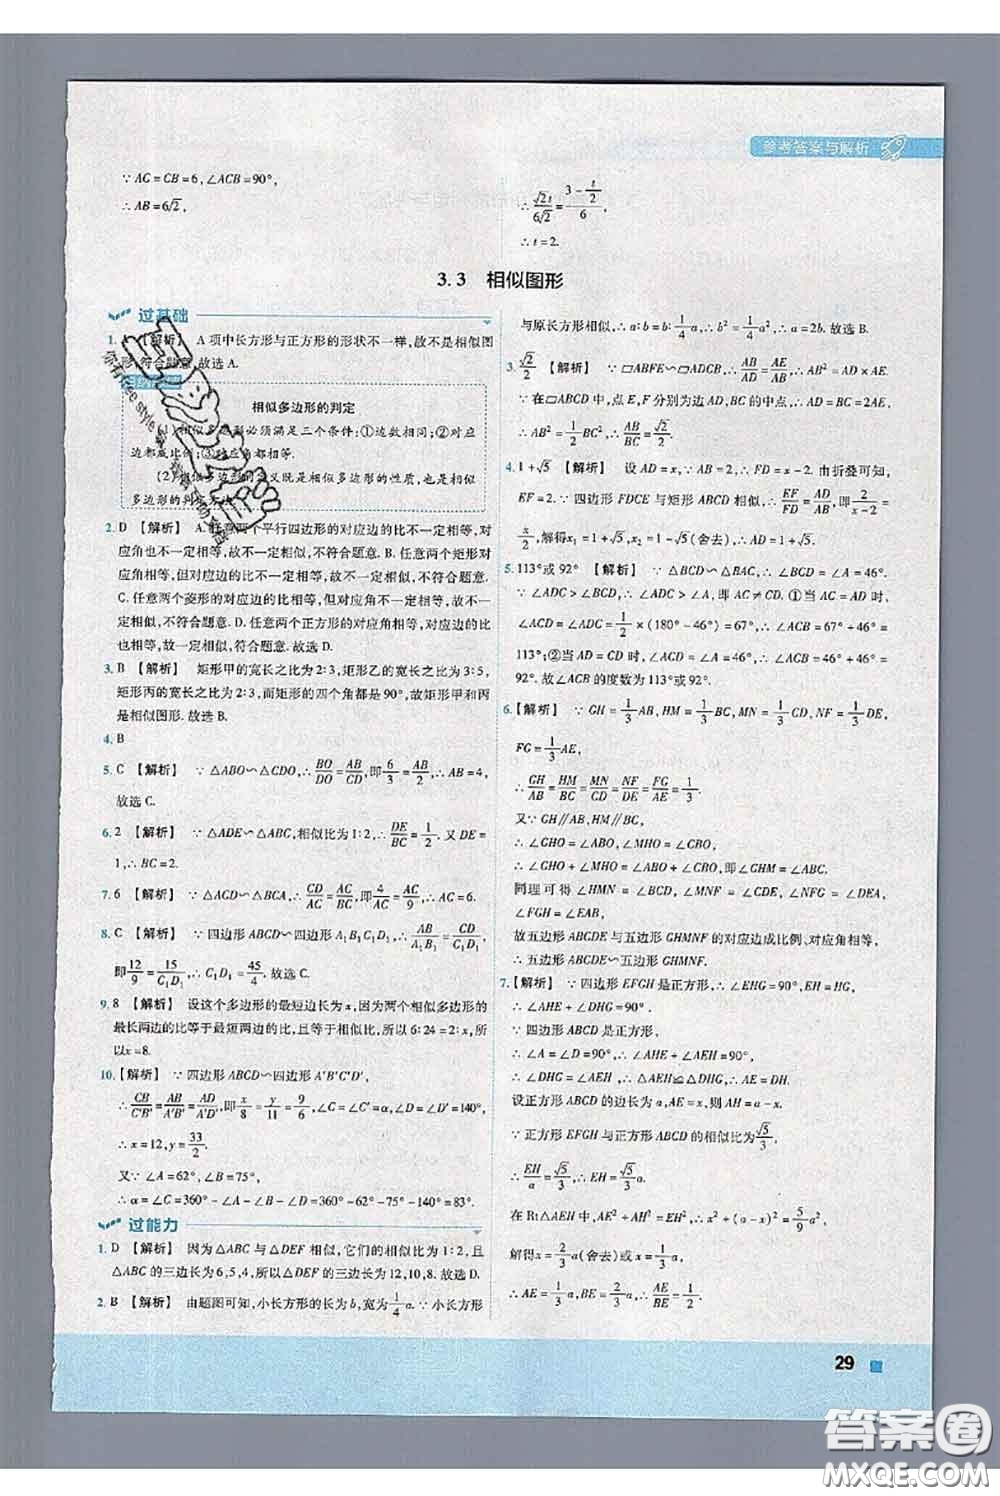 参考答案与解析
∵ AC = CB = 6, ∠ACB = 90°,
∴ AB = 6√2,
∴ √2t/6√2 = (3 - t/2)/6,
∴ t = 2.
3.3 相似图形
过基础
1. 【解析】 A 项中长方形与正方形的形状不一样,故不是相似图
形,符合题意,故选 A.
相似多边形的判定
(1)相似多边形必须满足三个条件:①边数相同;②对应
边都成比例;③对应角都相等.
(2)相似多边形的定义既是相似多边形的性质,也是相似
多边形的判定方法.
2. D 【解析】 A. 任意两个平行四边形的对应边的比不一定相等,对
应角也不一定相等,故不一定相似,不符合题意. B. 任意两个矩形对
应角相等,但对应边的比不一定相等,故不一定相似,不符合题意.
C. 任意两个菱形的对应边的比相等,但对应角不一定相等,故不一
定相似,不符合题意. D. 任意两个正方形的对应角相等,对应边的比
也相等,故一定相似,符合题意. 故选 D.
3. B 【解析】 矩形甲的宽长之比为 2:3,矩形乙的宽长之比为 ,
矩形丙的宽长之比为 2:3,而矩形的四个角都是 90°,故矩形甲和丙
是相似图形. 故选 B.
4. B
5. C 【解析】 ∵ △ABO∽△CDO,∴ BO/DO = AB/CD,即 6/3 = AB/2,∴ AB = 4,
故选 C.
6. 2 【解析】 ∵ △ADE∽△ABC,相似比为 1:2,∴ DE/BC = 1/2. 又 DE =
1,∴ BC = 2.
7. 6 【解析】 ∵ △ACD∽△ABC,∴ CD/AC = AC/BC,即 4/AC = AC/9,∴ AC = 6.
8. C 【解析】 ∵ 四边形 ABCD∽四边形 A₁B₁C₁D₁,∴ AB/A₁B₁ = CD/C₁D₁,
即 12/9 = 15/C₁D₁,∴ C₁D₁ = 45/4. 故选 C.
9. 8 【解析】 设这个多边形的最短边长为 x,因为两个相似多边形的
最长两边的比等于最短两边的比,且等于相似比,所以 6:24 = 2:x,所
以 x = 8.
10. 【解析】 ∵ 四边形 ABCD∽四边形 A'B'C'D',
∴ CB/C'B' = AB/A'B' = AD/A'D',即 x/8 = y/11 = 9/6,∠C = α,∠D = ∠D' = 140°,
∴ x = 12, y = 33/2.
又∵ ∠A = 62°,∠B = 75°,
∴ ∠α = ∠C = 360° - ∠A - ∠B - ∠D = 360° - 62° - 75° - 140° = 83°.
过能力
1. D 【解析】 因为 △ABC 与 △DEF 相似,它们的相似比为 1:2,且
△ABC 的三边长为 6,5,4,所以 △DEF 的三边长为 12,10,8. 故选 D.
2. B 【解析】 由题图可知,小长方形的长为 b,宽为 1/4 a. ∵ 小长方形
与原长方形相似,∴ a:b = b:1/4 a,∴ 1/4 a² = b²,∴ a = 2b. 故选 B.
3. √2/2 【解析】 ∵ ▱ABFE∽▱ADCB,∴ AB/AD = AE/AB,∴ AB² = AD × AE.
∵ 在 ▱ABCD 中,点 E,F 分别为边 AD,BC 的中点,∴ AD = BC = 2AE,
∴ AB² = 1/2 BC²,∴ AB/BC = √2/2.
4. 1 + √5 【解析】 设 AD = x,∵ AB = 2,∴ FD = x - 2. 由折叠可知,
EF = 2. ∵ 四边形 FDCE 与矩形 ABCD 相似,∴ EF/FD = AD/AB,即 2/(x-2) =
x/2,解得 x₁ = 1 + √5, x₂ = 1 - √5(舍去),∴ AD = 1 + √5.
5. 113°或 92° 【解析】 ∵ △BCD∽△BAC,∴ ∠BCD = ∠A = 46°.
∵ ∠ADC > ∠BCD,∴ ∠ADC > ∠A,即 AC ≠ CD. ①当 AC = AD 时,
∠ACD = ∠ADC = 1/2 × (180° - 46°) = 67°,∴ ∠ACB = 67° + 46° =
113°;②当 AD = CD 时,∠ACD = ∠A = 46°,∴ ∠ACB = 46° + 46° =
92°. 故∠ACB 的度数为 113°或 92°.
6. 【解析】 ∵ GH = 1/3 AB, HM = 1/3 BC, MN = 1/3 CD, NF = 1/3 DE,
FG = 1/3 AE,
∴ GH/AB = HM/BC = MN/CD = NF/DE = FG/AE = 1/3.
又∵ GH∥AB, HM∥BC,
∴ ∠GHO = ∠ABO,∠MHO = ∠CBO,
∴ ∠GHO + ∠MHO = ∠ABO + ∠CBO,即∠GHM = ∠ABC.
同理可得 ∠HMN = ∠BCD,∠MNF = ∠CDE,∠NFG = ∠DEA,
∠FGH = ∠EAB,
故五边形 ABCDE 与五边形 GHMNF 的对应边成比例、对应角相等,
∴ 五边形 ABCDE∽五边形 GHMNF.
7. 【解析】 ∵ 四边形 EFGH 是正方形,∴ ∠EHG = 90°, EH = HG,
∴ ∠AHE + ∠DHG = 90°.
∵ 四边形 ABCD 是正方形,
∴ ∠A = ∠D = 90°,∴ ∠AHE + ∠AEH = 90°,
∴ ∠DHG = ∠AEH,∴ △AEH≌△DHG,∴ AE = DH.
设正方形 ABCD 的边长为 a, AE = x,则 AH = a - x.
∵ 正方形 EFGH 与正方形 ABCD 的相似比为 √5/3,
∴ EH/a = √5/3,∴ EH = √5/3 a.
在 Rt△AEH 中, AE² + AH² = EH²,∴ x² + (a - x)² = 5/9 a²,
解得 x = 2/3 a(舍去)或 x = 1/3 a,
∴ AE = 1/3 a, BE = 2/3 a,∴ AE/BE = 1/2.
29
答案圈
MXQE.COM